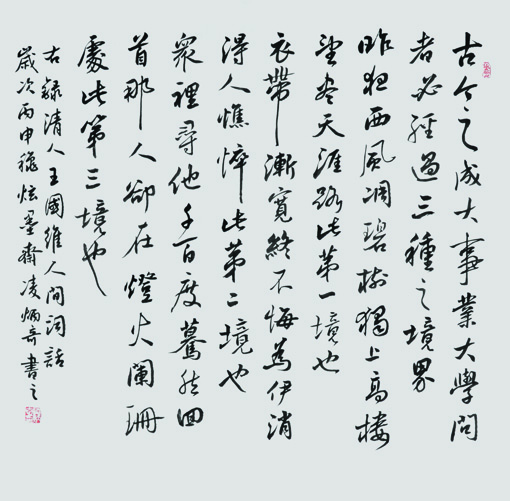 古今之成大事業大學問
者必經過三種之境界
昨夜西風凋碧樹獨上高樓
望盡天涯路此第一境也
衣帶漸寬終不悔為伊消
得人憔悴此第二境也
衆裡尋他千百度驀然回
首那人卻在燈火闌珊
處此第三境也
右録清人王國維人間詞話
歲次丙申穐炫墨齋凌炳奇書之